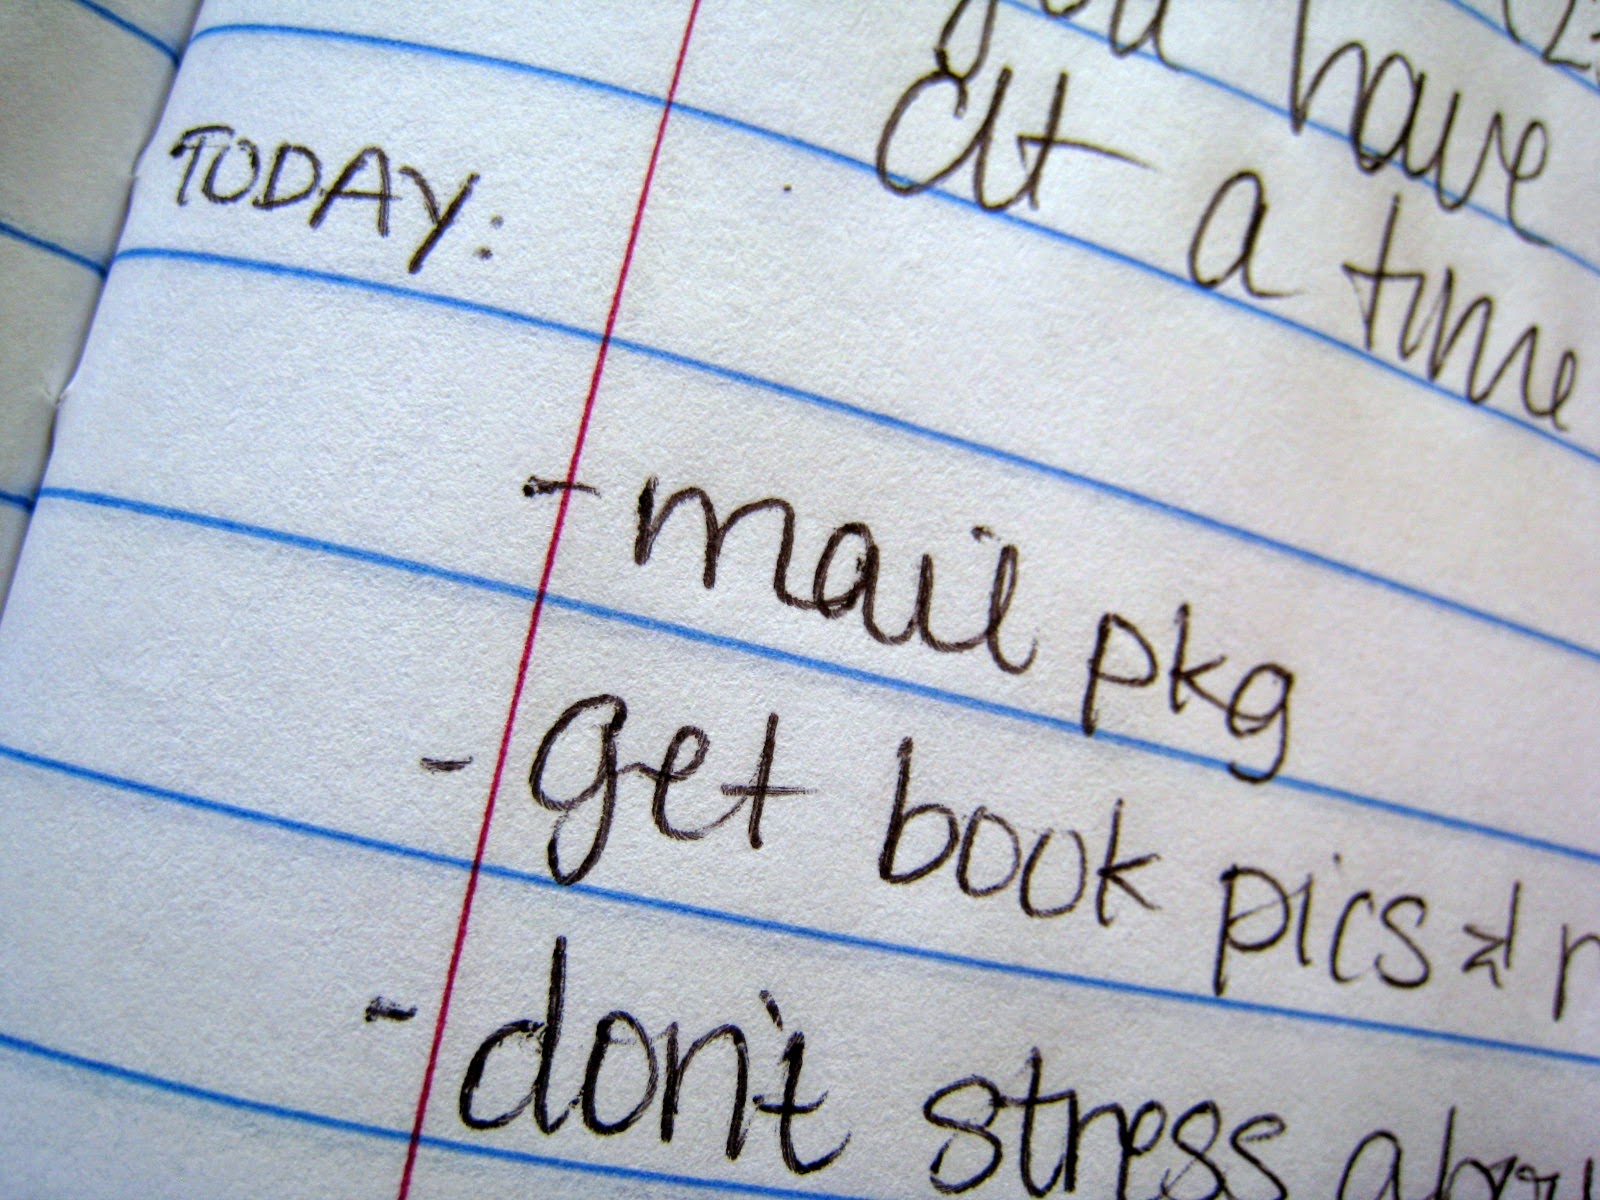 you have
at a time
TODAY:
- mail pkg
- get book pics &
- don't stress